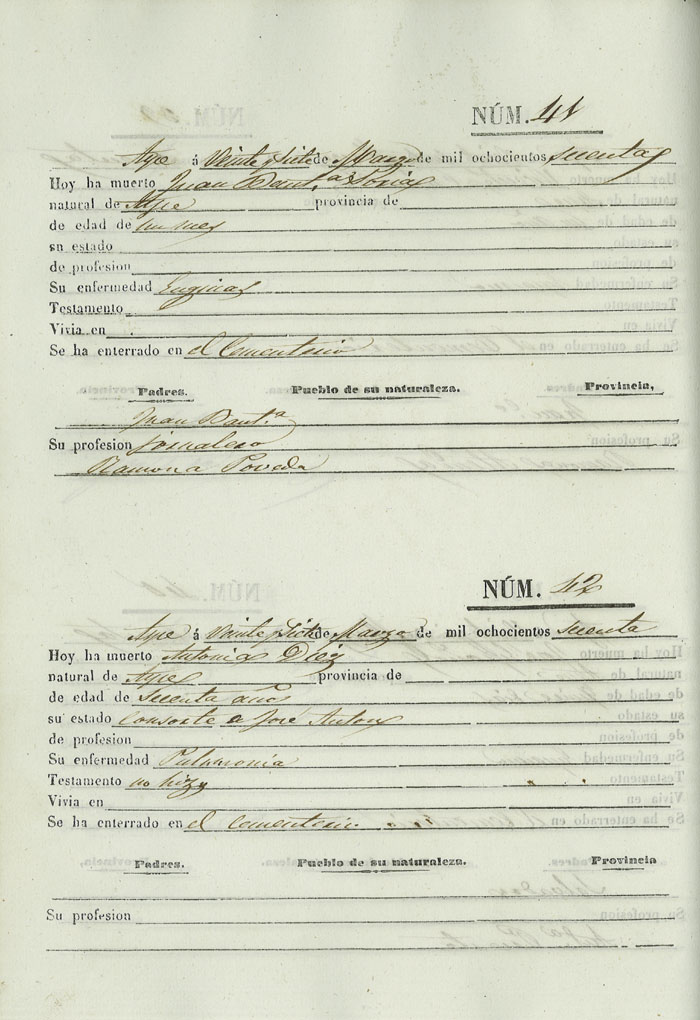 NÚM. 41
Aspe á Veinte y Siete de Marzo de mil ochocientos sesenta
Hoy ha muerto Juan Baut.ª Soria
natural de Aspe provincia de
de edad de un mes
su estado
de profesion
Su enfermedad Anginas
Testamento
Vivia en
Se ha enterrado en el Cementerio
Padres. Pueblo de su naturaleza. Provincia,
Juan Baut.ª
Su profesion Jornalero
Ramona Poveda
NÚM. 42
Aspe á Veinte y Siete de Marzo de mil ochocientos sesenta
Hoy ha muerto Antonia Diez
natural de Aspe provincia de
de edad de sesenta años
su estado Consorte de José Anton
de profesion
Su enfermedad Pulmonia
Testamento no hizo
Vivia en
Se ha enterrado en el Cementerio
Padres. Pueblo de su naturaleza. Provincia
Su profesion